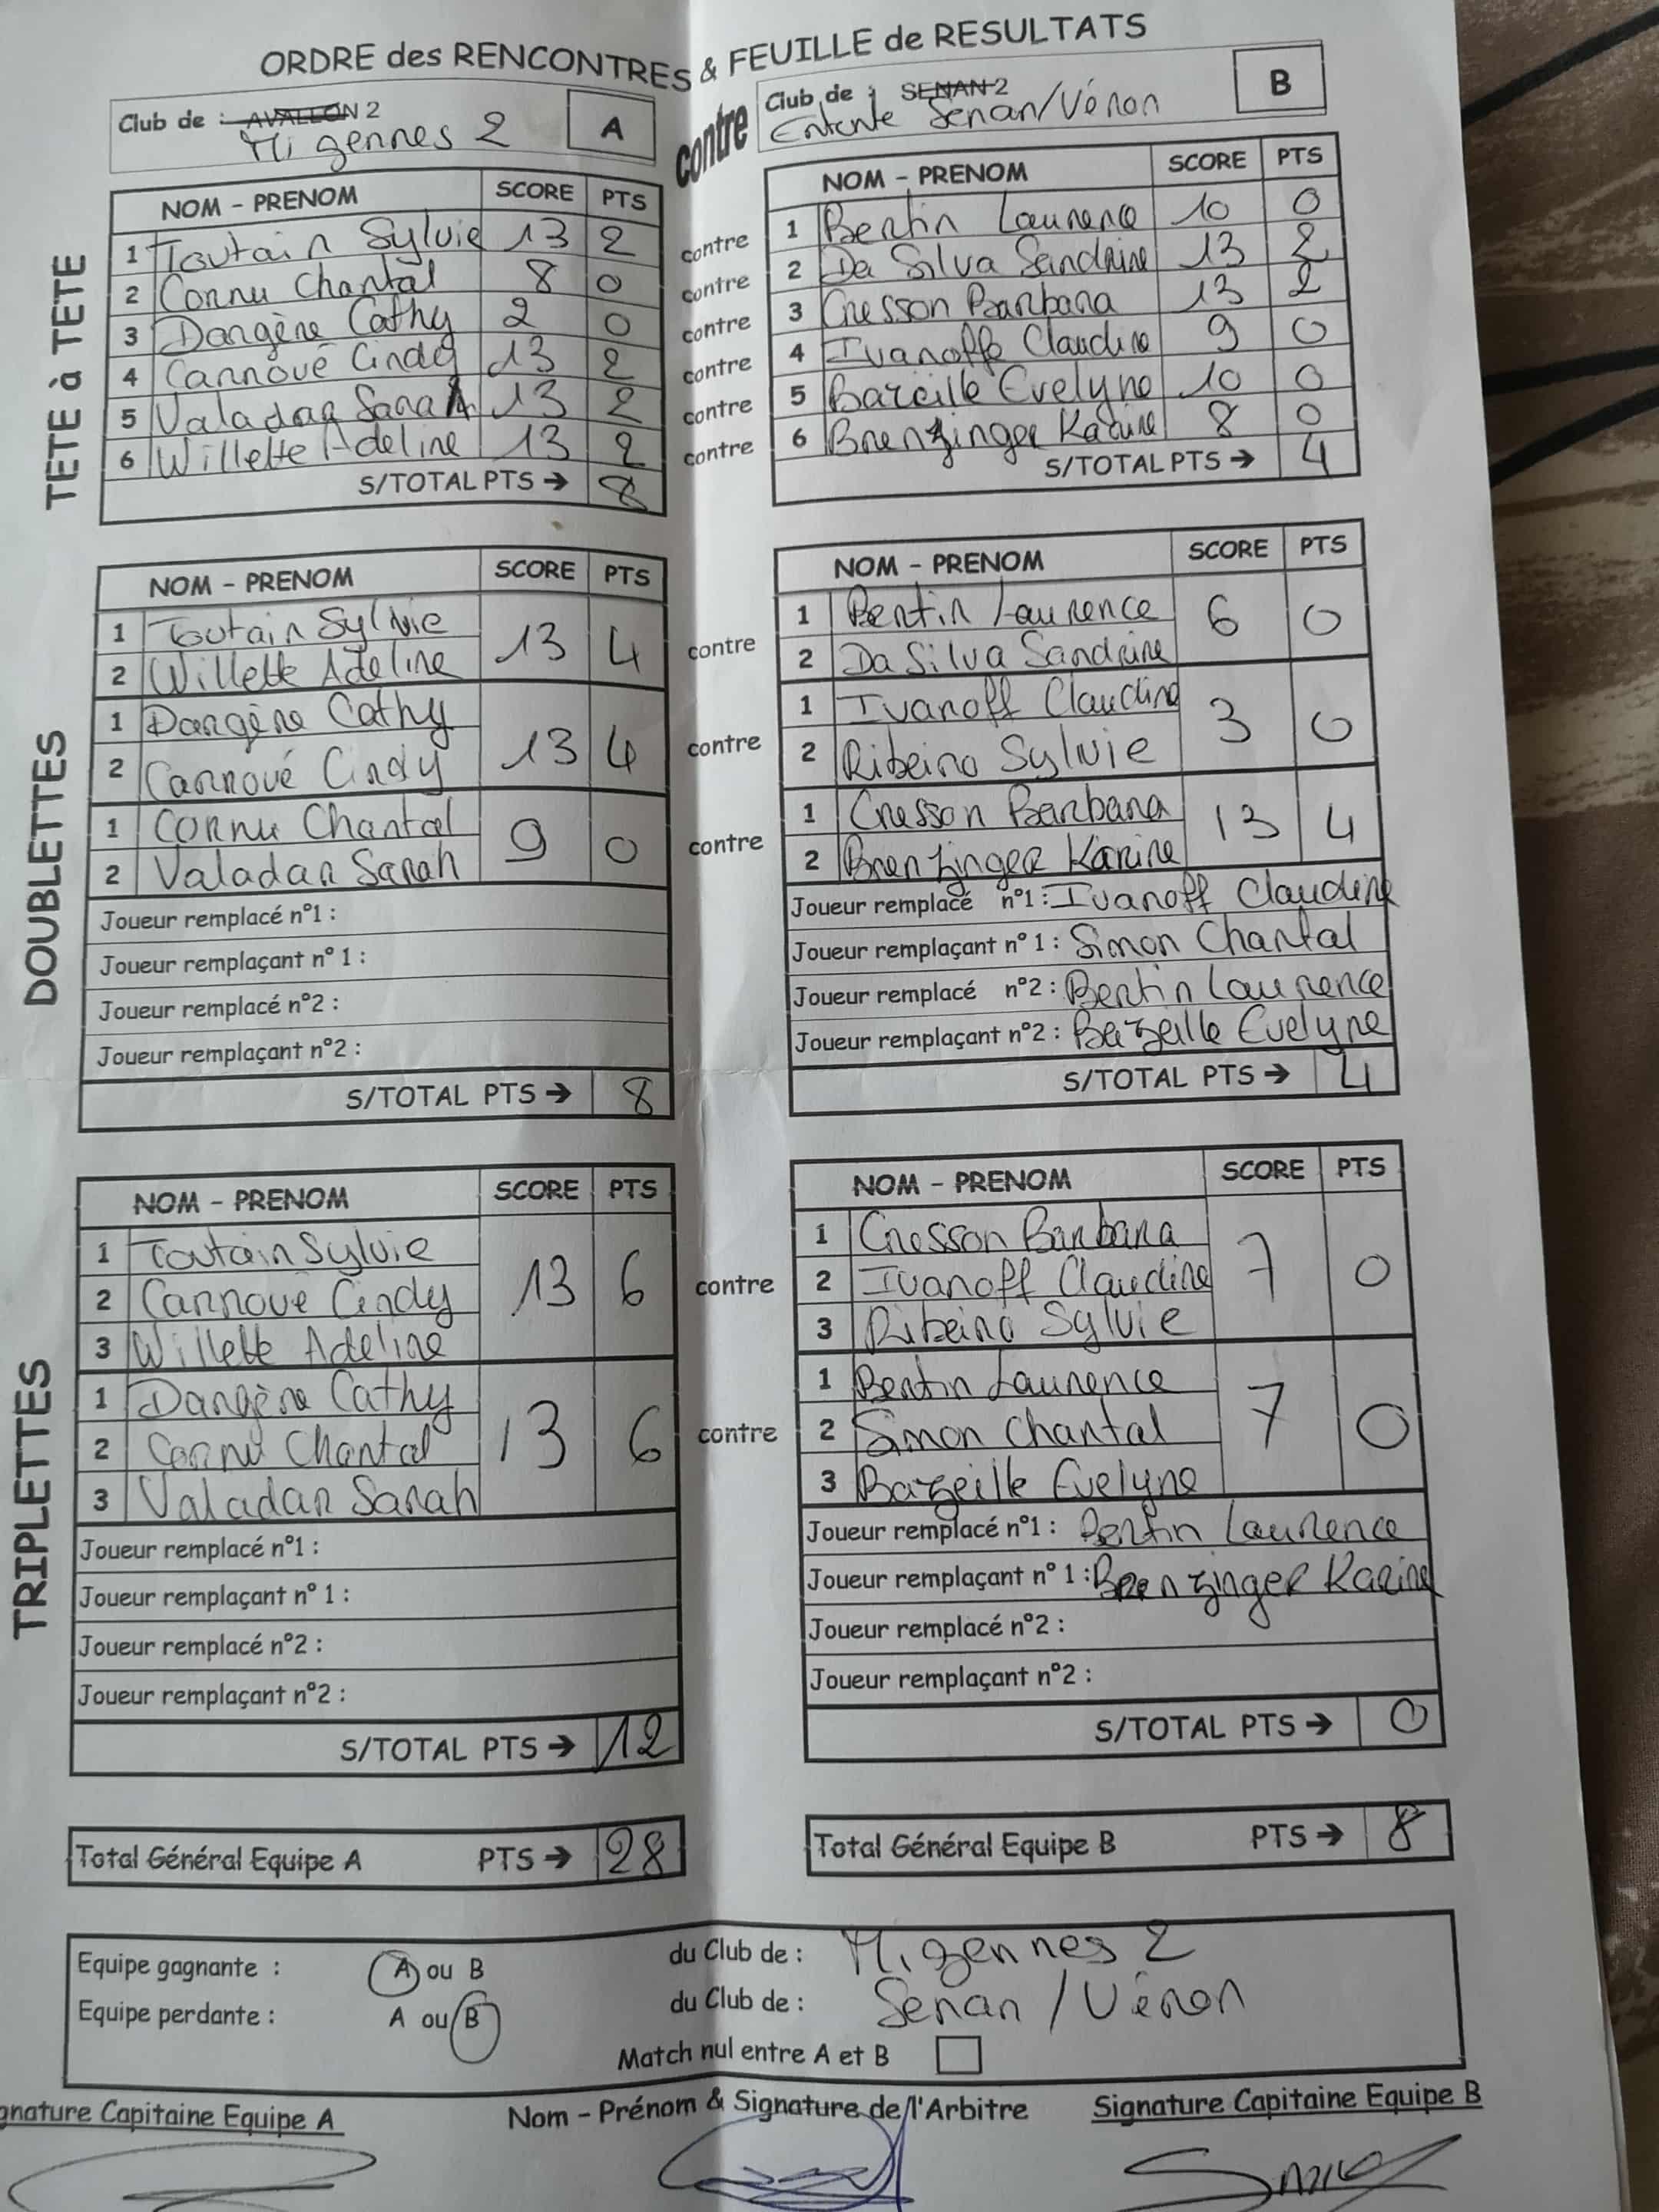 ORDRE des RENCONTRES & FEUILLE de RESULTATS
Club de : AVALLON 2
Migennes 2
A
contre
Club de : SENAN 2
Entente Senan/Véron
B
TETE à TETE
NOM - PRENOM SCORE PTS
1 Toutain Sylvie 13 2
2 Cornu Chantal 8 0
3 Dangène Cathy 2 0
4 Cannoué Cindy 13 2
5 Valadan Sarah 13 2
6 Willette Adeline 13 2
S/TOTAL PTS → 8
contre
contre
contre
contre
contre
contre
NOM - PRENOM SCORE PTS
1 Bertin Laurence 10 0
2 Da Silva Sandrine 13 2
3 Cresson Barbara 13 2
4 Ivanoffe Claudine 9 0
5 Bazeille Evelyne 10 0
6 Brenzinger Karine 8 0
S/TOTAL PTS → 4
DOUBLETTES
NOM - PRENOM SCORE PTS
1 Toutain Sylvie 13 4
2 Willette Adeline
1 Dangène Cathy 13 4
2 Cannoué Cindy
1 Cornu Chantal 9 0
2 Valadan Sarah
Joueur remplacé n°1 :
Joueur remplaçant n° 1 :
Joueur remplacé n°2 :
Joueur remplaçant n°2 :
S/TOTAL PTS → 8
contre
contre
contre
NOM - PRENOM SCORE PTS
1 Bertin Laurence 6 0
2 Da Silva Sandrine
1 Ivanoff Claudine 3 0
2 Ribeiro Sylvie
1 Cresson Barbara 13 4
2 Brenzinger Karine
Joueur remplacé n°1 : Ivanoff Claudine
Joueur remplaçant n° 1 : Simon Chantal
Joueur remplacé n°2 : Bertin Laurence
Joueur remplaçant n°2 : Bazeille Evelyne
S/TOTAL PTS → 4
TRIPLETTES
NOM - PRENOM SCORE PTS
1 Toutain Sylvie 13 6
2 Cannoué Cindy
3 Willette Adeline
1 Dangène Cathy 13 6
2 Cornu Chantal
3 Valadan Sarah
Joueur remplacé n°1 :
Joueur remplaçant n° 1 :
Joueur remplacé n°2 :
Joueur remplaçant n°2 :
S/TOTAL PTS → 12
contre
contre
NOM - PRENOM SCORE PTS
1 Cresson Barbara 7 0
2 Ivanoff Claudine
3 Ribeiro Sylvie
1 Bertin Laurence 7 0
2 Simon Chantal
3 Bazeille Evelyne
Joueur remplacé n°1 : Bertin Laurence
Joueur remplaçant n° 1 : Brenzinger Karine
Joueur remplacé n°2 :
Joueur remplaçant n°2 :
S/TOTAL PTS → 0
Total Général Equipe A PTS → 28
Total Général Equipe B PTS → 8
Equipe gagnante : A ou B du Club de : Migennes 2
Equipe perdante : A ou B du Club de : Senan / Véron
Match nul entre A et B
gnature Capitaine Equipe A
Nom - Prénom & Signature de l'Arbitre
Signature Capitaine Equipe B